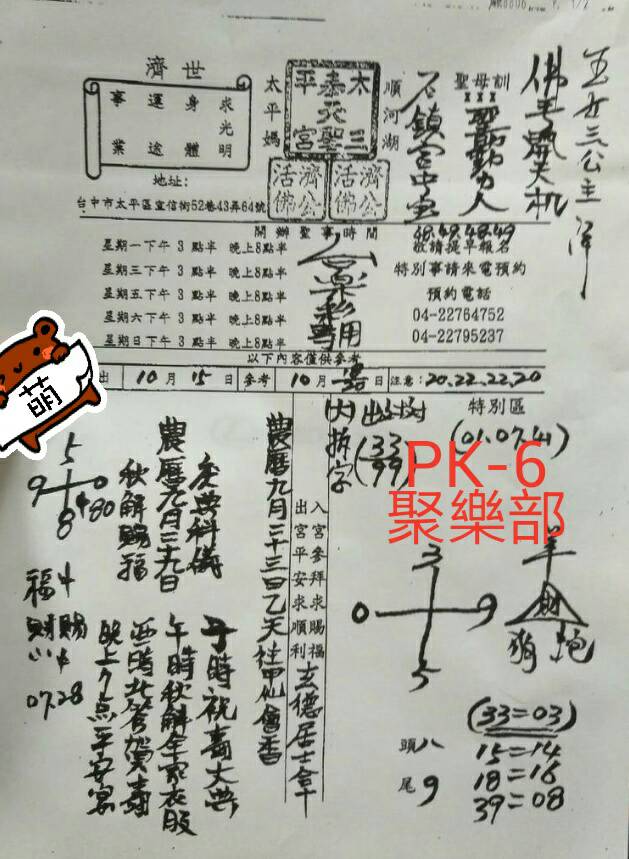 玉女三公主降
佛手瓶天机
聖母訓
xxx
石鎮宮中宝
順河湖
太三
泰天聖
平宮
太平媽
濟公
活佛
濟公
活佛
世濟
求光明
身體
運途
事業
地址:
台中市太平區宜信街52巷43弄64號
開辦聖事時間
星期一下午 3 點半 晚上8點半
星期三下午 3 點半 晚上8點半
星期五下午 3 點半 晚上8點半
星期六下午 3 點半 晚上8點半
星期日下午 3 點半 晚上8點半
六合彩
專用
48.49.48.49
敬請提早報名
特別事請來電預約
預約電話
04-22764752
04-22795237
以下內容僅供參考
出 10 月 15 日 參考 10 月 日 注意: 20.22.22.20
萌
特別區
(01.07.41)
內
拆字
(33
99)
PK-6
聚樂部
3
0 9
5
羊
財
(33=03)
15=14
18=16
39=08
頭 八
尾 9
入宮參拜求賜福
出宮平安求順利
玄德居士合十
農曆九月二十三日乙天社甲仙會香
農曆九月二十九日
慶典科儀
秋解賜福
子時祝壽大典
午時秋解全家衣服
酉時北管賀壽
晚上7点平安宴
5
9 0
8 480
福中
財賜
小中
07.28